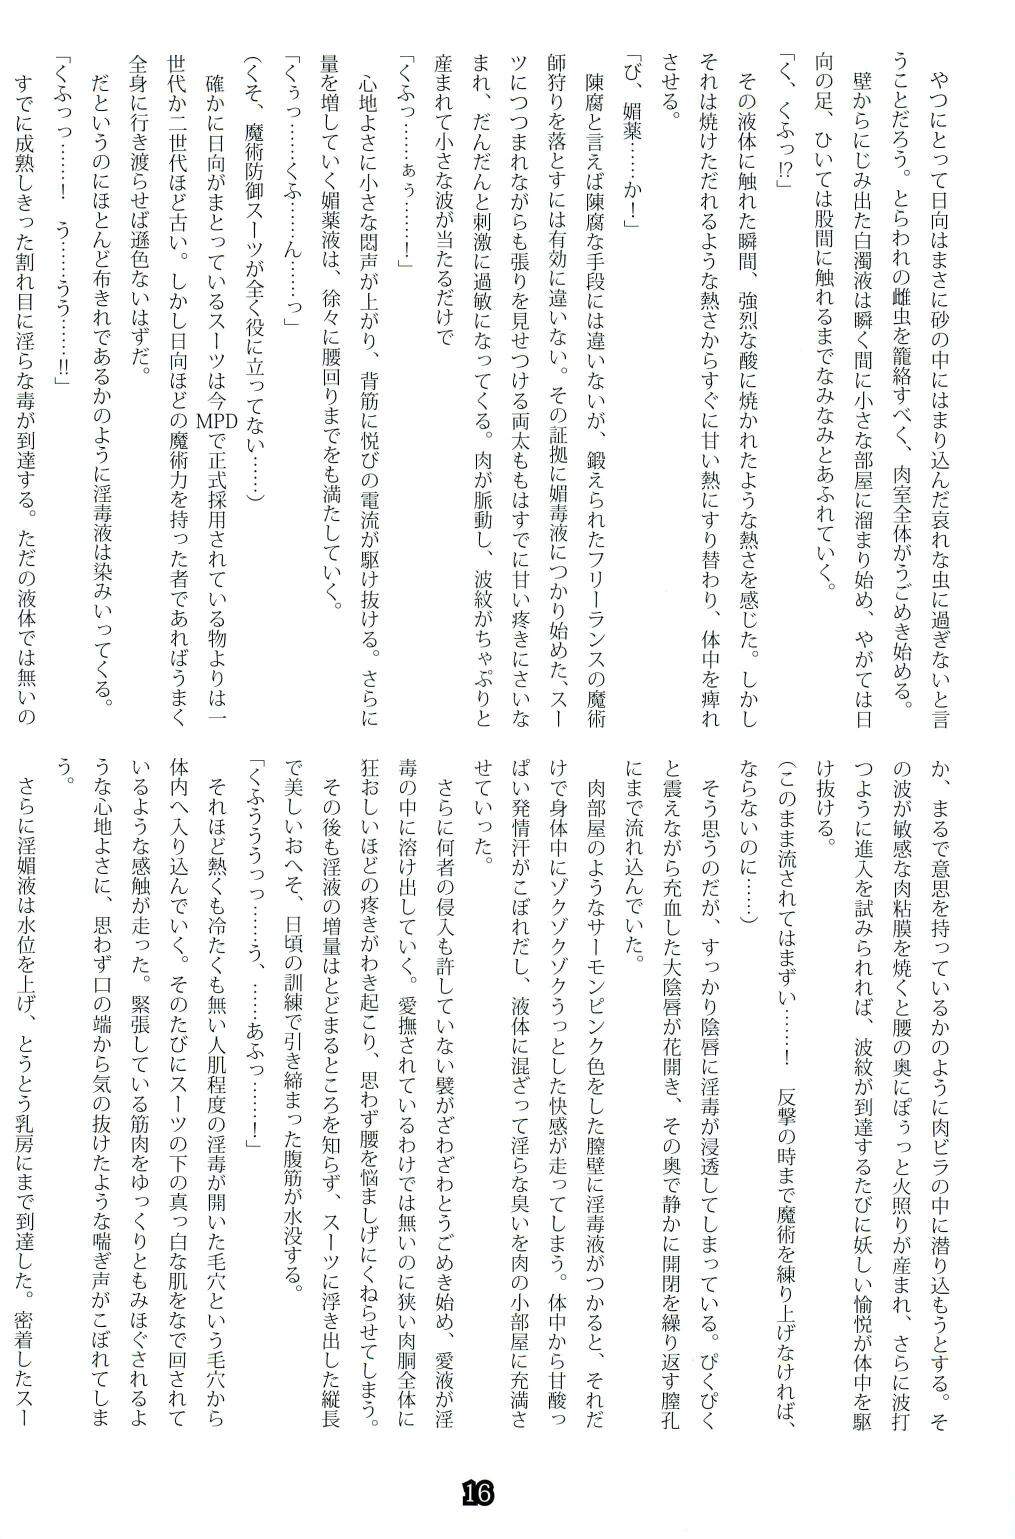 やつにとって日向はまさに砂の中にはまり込んだ哀れな虫に過ぎないと言
うことだろう。とらわれの雌虫を籠絡すべく、肉室全体がうごめき始める。
壁からにじみ出た白濁液は瞬く間に小さな部屋に溜まり始め、やがては日
向の足、ひいては股間に触れるまでなみなみとあふれていく。
「く、くふっ!?」
その液体に触れた瞬間、強烈な酸に焼かれたような熱さを感じた。しかし
それは焼けただれるような熱さからすぐに甘い熱にすり替わり、体中を痺れ
させる。
「び、媚薬……か！」
陳腐と言えば陳腐な手段には違いないが、鍛えられたフリーランスの魔術
師狩りを落とすには有効に違いない。その証拠に媚毒液につかり始めた、スー
ツにつつまれながらも張りを見せつける両太ももはすでに甘い疼きにさいな
まれ、だんだんと刺激に過敏になってくる。肉が脈動し、波紋がちゃぷりと
産まれて小さな波が当たるだけで
「くふっ……ぁぅ……！」
心地よさに小さな悶声が上がり、背筋に悦びの電流が駆け抜ける。さらに
量を増していく媚薬液は、徐々に腰回りまでをも満たしていく。
「くぅっ……くふ……ん……っ」
（くそ、魔術防御スーツが全く役に立ってない……）
確かに日向がまとっているスーツは今MPDで正式採用されている物よりは一
世代か二世代ほど古い。しかし日向ほどの魔術力を持った者であればうまく
全身に行き渡らせば遜色ないはずだ。
だというのにほとんど布きれであるかのように淫毒液は染みいってくる。
「くふっっ……！　う……うう……!!」
すでに成熟しきった割れ目に淫らな毒が到達する。ただの液体では無いの
か、まるで意思を持っているかのように肉ビラの中に潜り込もうとする。そ
の波が敏感な肉粘膜を焼くと腰の奥にぽぅっと火照りが産まれ、さらに波打
つように進入を試みられれば、波紋が到達するたびに妖しい愉悦が体中を駆
け抜ける。
（このまま流されてはまずい……！　反撃の時まで魔術を練り上げなければ、
ならないのに……）
そう思うのだが、すっかり陰唇に淫毒が浸透してしまっている。ぴくぴく
と震えながら充血した大陰唇が花開き、その奥で静かに開閉を繰り返す膣孔
にまで流れ込んでいた。
肉部屋のようなサーモンピンク色をした膣壁に淫毒液がつかると、それだ
けで身体中にゾクゾクゾクぅっとした快感が走ってしまう。体中から甘酸っ
ぱい発情汗がこぼれだし、液体に混ざって淫らな臭いを肉の小部屋に充満さ
せていった。
さらに何者の侵入も許していない襞がざわざわとうごめき始め、愛液が淫
毒の中に溶け出していく。愛撫されているわけでは無いのに狭い肉胴全体に
狂おしいほどの疼きがわき起こり、思わず腰を悩ましげにくねらせてしまう。
その後も淫液の増量はとどまるところを知らず、スーツに浮き出した縦長
で美しいおへそ、日頃の訓練で引き締まった腹筋が水没する。
「くふうううっっ……う、……あふっ……！」
それほど熱くも冷たくも無い人肌程度の淫毒が開いた毛穴という毛穴から
体内へ入り込んでいく。そのたびにスーツの下の真っ白な肌をなで回されて
いるような感触が走った。緊張している筋肉をゆっくりともみほぐされるよ
うな心地よさに、思わず口の端から気の抜けたような喘ぎ声がこぼれてしま
う。
さらに淫媚液は水位を上げ、とうとう乳房にまで到達した。密着したスー
16